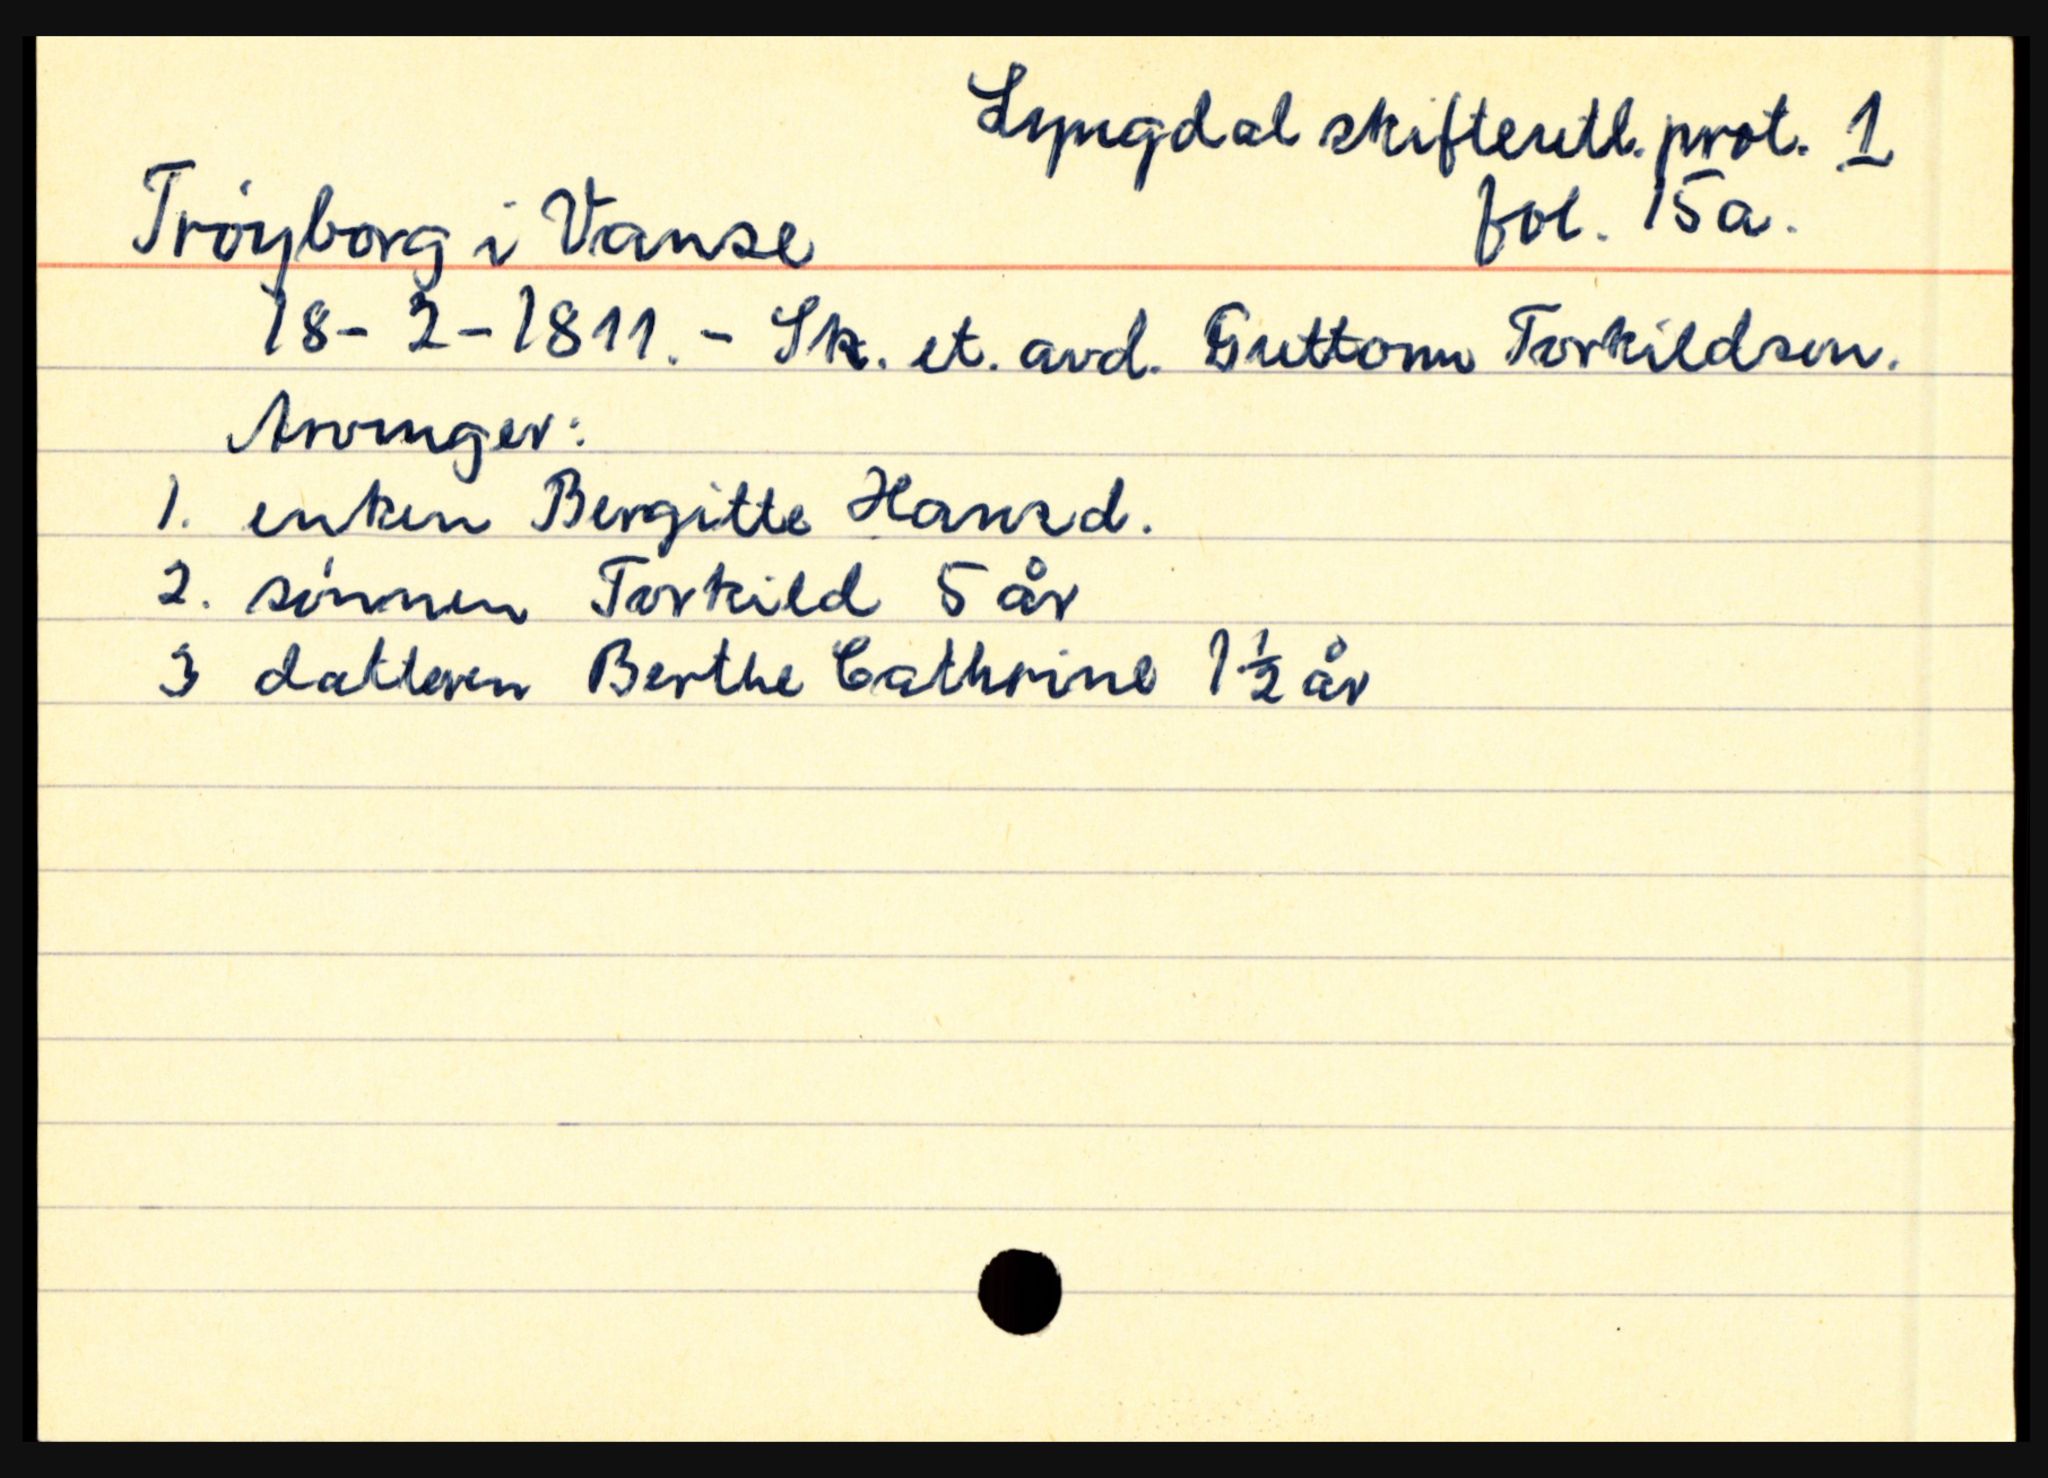 Lyngdal skifteutl. prot. 1
fol. 15a.
Trøyborg i Vanse
18-2-1811. - Sk. et. avd. Guttorm Torkildsen.
Arvinger:
1. enken Bergitte Hansd.
2. sønnen Torkild 5 år
3 datteren Berthe Cathrine 1 1/2 år